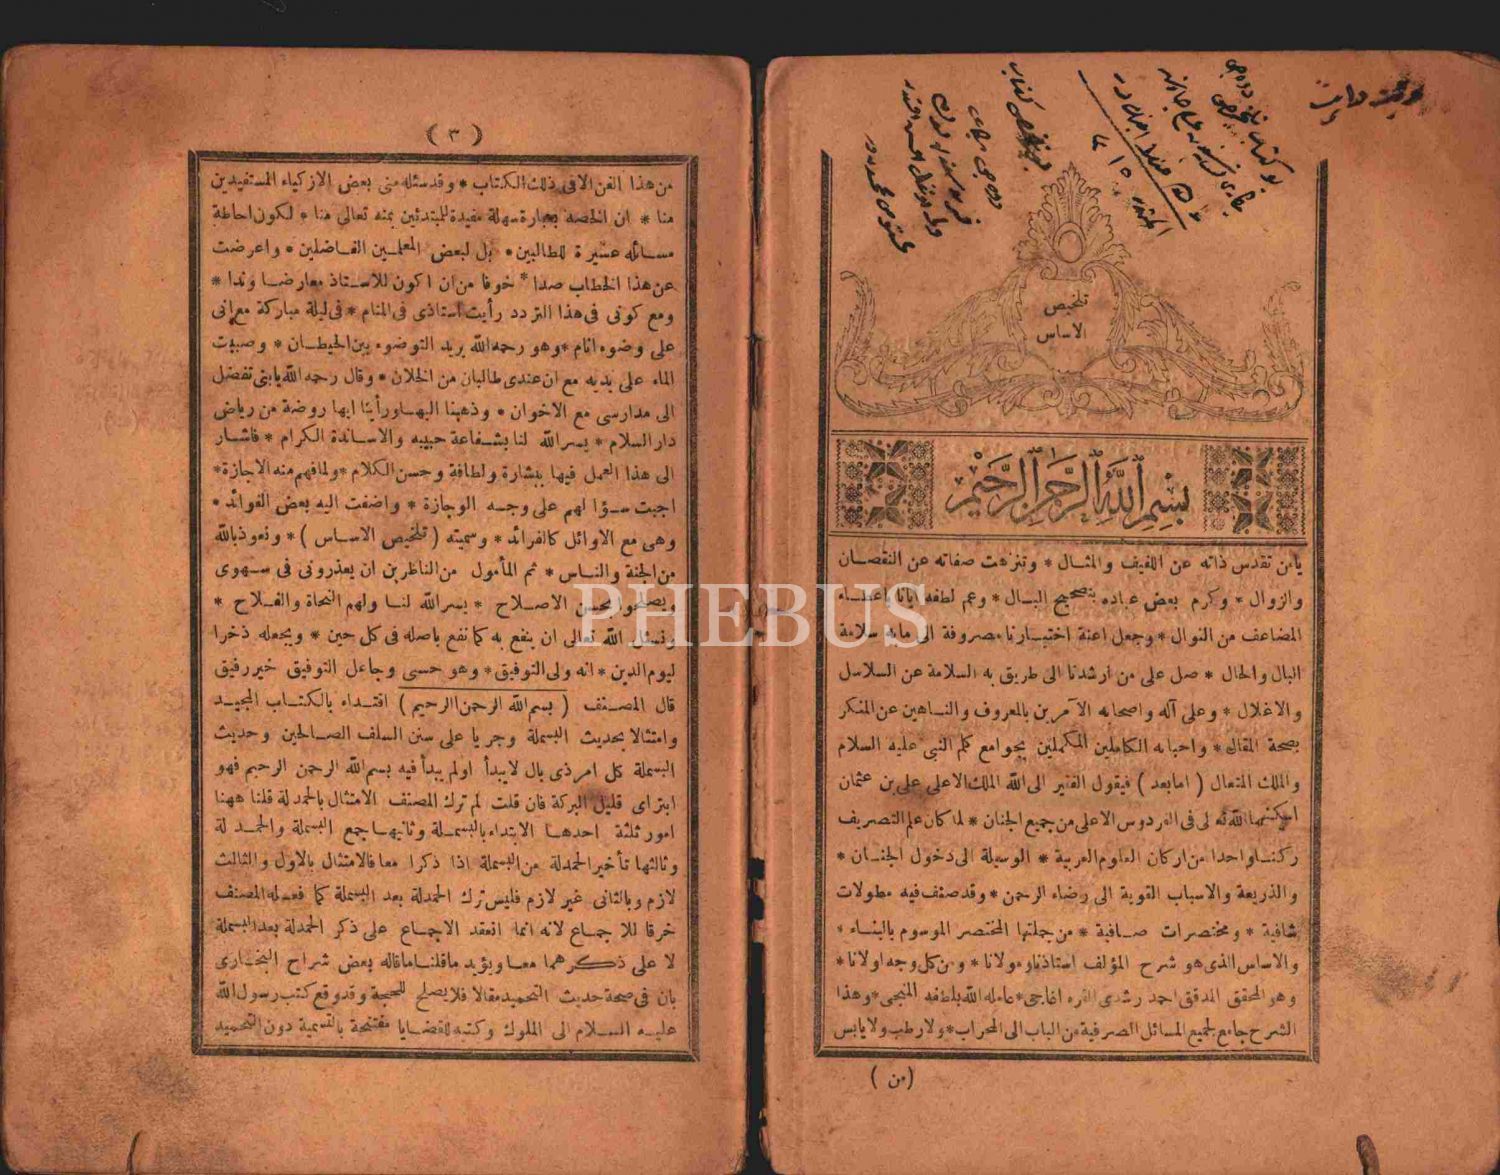 تلخيص
الاساس
بسم الله الرحمن الرحيم
يامن تقدس ذاته عن اللفيف والمثال * وتنزهت صفاته عن النقصان
والزوال * وكرم بعض عباده بتصحيح البال * وعم لطفه ايانا باعطاء
المضاعف من النوال * وجعل اعنة اختيارنا مصروفة الى مابه سلامة
البال والحال * صل على من ارشدنا الى طريق به السلامة عن السلاسل
والاغلال * وعلى آله واصحابه الآمرين بالمعروف والناهين عن المنكر
بصحة المقال * واحبابه الكاملين المكملين بجوامع كلم النبى عليه السلام
والملك المتعال ( امابعد ) فيقول الفقير الى الله الملك الاعلى على بن عثمان
اسكنهما الله تعالى فى الفردوس الاعلى من جميع الجنان * لما كان علم التصريف
ركنا واحدا من اركان العلوم العربية * الوسيلة الى دخول الجنان *
والذريعة والاسباب القوية الى رضاء الرحمن * وقد صنف فيه مطولات
شافية * ومختصرات صافية * من جملتها المختصر الموسوم بالبناء *
والاساس الذى هو شرح المؤلف استاذنا ومولانا * ومن كل وجه اولانا *
وهو المحقق المدقق احمد رشدى القره اغاجى * عامله الله بلطفه المنجى * وهذا
الشرح جامع لجميع المسائل الصرفية من الباب الى المحراب * ولا رطب ولا يابس
( من )
( ٣ )
من هذا الفن الا فى ذلك الكتاب * وقد سئله منى بعض الازكياء المستفيدين
منا * ان الخصه بعبارة سهلة مفيدة للمبتدئين بمنه تعالى منا * لكون احاطة
مسائله عسيرة للطالبين * بل لبعض المعلمين الفاضلين * واعرضت
عن هذا الخطاب صدا * خوفا من ان اكون للاستاذ معارضا وندا *
ومع كونى فى هذا التردد رأيت استاذى فى المنام * فى ليلة مباركة مع انى
على وضوء انام * وهو رحمه الله يريد التوضوء بين الحيطان * وصببت
الماء على يديه مع ان عندى طالبان من الخلان * وقال رحمه الله يابنى تفضل
الى مدارسى مع الاخوان * وذهبنا اليها ورأينا انها روضة من رياض
دار السلام * يسر الله لنا بشفاعة حبيبه والاساتذة الكرام * فاشار
الى هذا العمل فيها ببشارة ولطافة وحسن الكلام * ولما فهم منه الاجازة *
اجبت سؤالهم على وجه الوجازة * واضفت اليه بعض الفوائد *
وهى مع الاوائل كالفرائد * وسميته ( تلخيص الاساس ) * ونعوذ بالله
من الجنة والناس * ثم المأمول من الناظرين ان يعذرونى فى سهوى
ويصلحوا بحسن الاصلاح * يسر الله لنا ولهم النجاة والفلاح *
ونسئل الله تعالى ان ينفع به كما نفع باصله فى كل حين * ويجعله ذخرا
ليوم الدين * انه ولى التوفيق * وهو حسبى وجاعل التوفيق خير رفيق
قال المصنف ( بسم الله الرحمن الرحيم ) اقتداء بالكتاب المجيد
وامتثالا بحديث البسملة وجريا على سنن السلف الصالحين وحديث
البسملة كل امر ذى بال لا يبدأ اولم يبدأ فيه بسم الله الرحمن الرحيم فهو
ابتر اى قليل البركة فان قلت لم ترك المصنف الامتثال بالحمدلة قلنا ههنا
امور ثلثة احدها الابتداء بالبسملة وثانيها جمع البسملة والحمدلة
وثالثها تأخير الحمدلة من البسملة اذا ذكرا معا فالامتثال بالاول والثالث
لازم وبالثانى غير لازم فليس ترك الحمدلة بعد البسملة كما فعله المصنف
خرقا للاجماع لانه انما انعقد الاجماع على ذكر الحمدلة بعد البسملة
لا على ذكرهما معا ويؤيد ماقلنا ماقاله بعض شراح البخارى
بان فى صحة حديث التحميد مقالا فلا يصلح للحجة وقد وقع كتب رسول الله
عليه السلام الى الملوك وكتبه للقضايا مفتتحة بالتسمية دون التحميد
PHEBUS